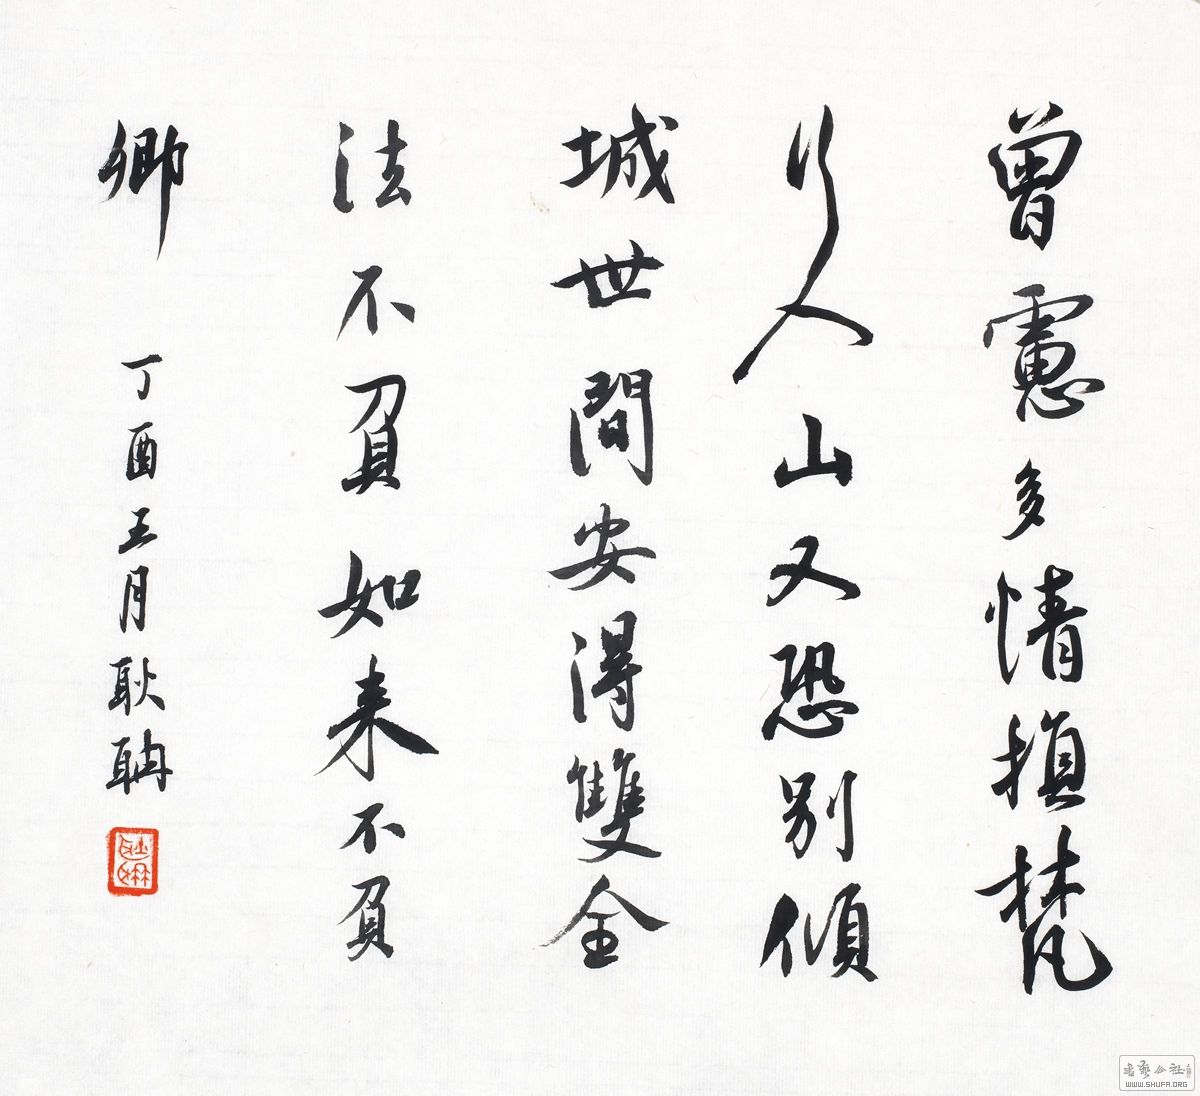 曾慮多情損梵
行入山又恐別傾
城世間安得雙全
法不負如来不負
卿
丁酉五月耿聃
書藝公社
WWW.SHUFA.ORG